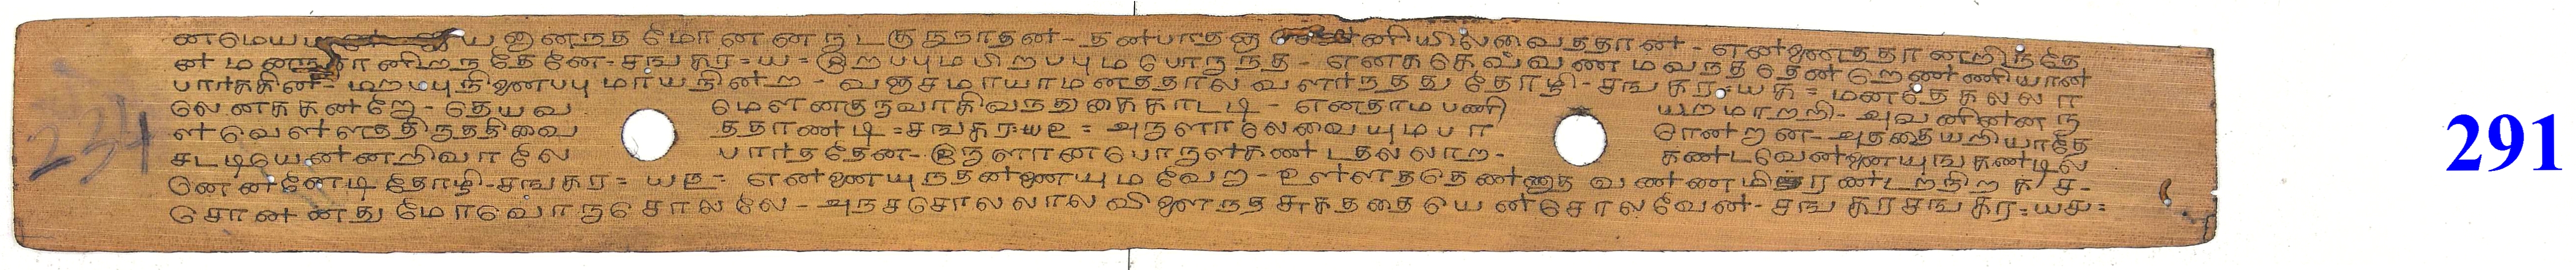 னமெயய யனைந்த மோனன நடகுருநாதன - தனபாதஞ ணியிலவைததான - என்ணைததானறிநதே
ன மனந தானிறநதேனே - சஙகர = ய = இறபபுமபிறபபும பொருநத - எனககெவவணம வநததென றெணணியான
பாரககின - மறபபுநினைபபு மாயநினற - வஞசமாயாமனததால வளரநதது தோழி - சஙகர = யக = மனதே கலலா
லெனககனறே - தெயவ மௌனகுருவாகிவநதுகைகாடடி - எனதாமபணி யறமாறறி - அவனினன ரு
ளவெளளததிருததிவை ததாணடி = சஙகர = யஉ = அருளாலேவையுமபா ரெனறன - அததையறியாதே
சுடடியெனனறிவாலே பாரததேன - இருளானபொருளகணடதலலாற - கணடவெனணையுஙகணடில
னெனனேடி தோழி - சஙகர = யங = எனணையுநதனணையும வேற - உளளததெணணாத வணணமி ரணடறநிற க - ச -
சொனனது மோவொருசொலலே - அநதசொலலால விளைநத சுகததையெனசொலவேன - சஙகரசஙகர = யச =
234
291